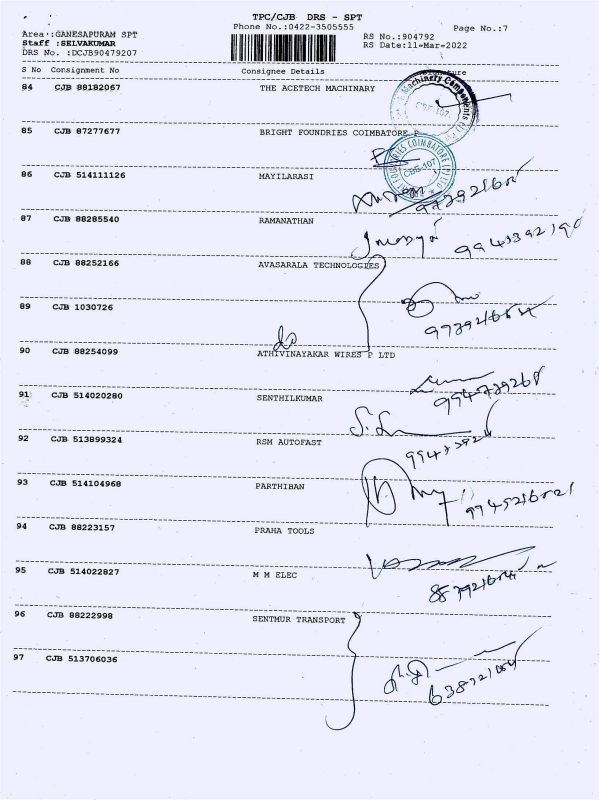 TPC/CJB DRS - SPT
Phone No.:0422-3505555
Page No.:7
Area :GANESAPURAM SPT
Staff :SELVAKUMAR
DRS No. :DCJB90479207
RS No.:904792
RS Date:11-Mar-2022
S No Consignment No Consignee Details Signature
84 CJB 88182067 THE ACETECH MACHINARY
Machinery Components
CBE-107
85 CJB 87277677 BRIGHT FOUNDRIES COIMBATORE P
FOUNDRIES COIMBATORE (P) LTD
CBE-107
86 CJB 514111126 MAYILARASI
87 CJB 88285540 RAMANATHAN
9943392190
88 CJB 88252166 AVASARALA TECHNOLOGIES
89 CJB 1030726
do
90 CJB 88254099 ATHIVINAYAKAR WIRES P LTD
91 CJB 514020280 SENTHILKUMAR
92 CJB 513899324 RSM AUTOFAST
93 CJB 514104968 PARTHIBAN
94 CJB 88223157 PRAHA TOOLS
95 CJB 514022827 M M ELEC
96 CJB 88222998 SENTMUR TRANSPORT
97 CJB 513706036